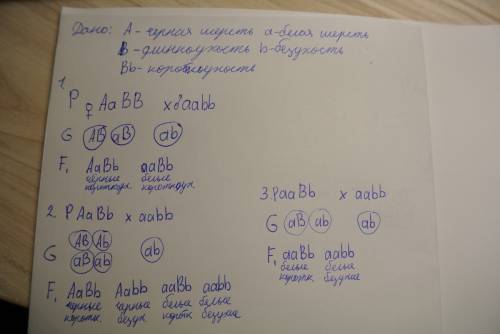 Дано: А - черная шерсть а - белая шерсть
В - длинноухость b - безухость
Bb - короткоухость
1.
P ♀ AaBB x ♂ aabb
G AB aB ab
F₁ AaBb aaBb
черные белые
короткоух. короткоух.
2. P AaBb x aabb
G AB Ab ab
aB ab
F₁ AaBb Aabb aaBb aabb
черные черные белые белые
коротк. безух. коротк. безухие
3. P aaBb x aabb
G aB ab ab
F₁ aaBb aabb
белые белые
коротк. безухие